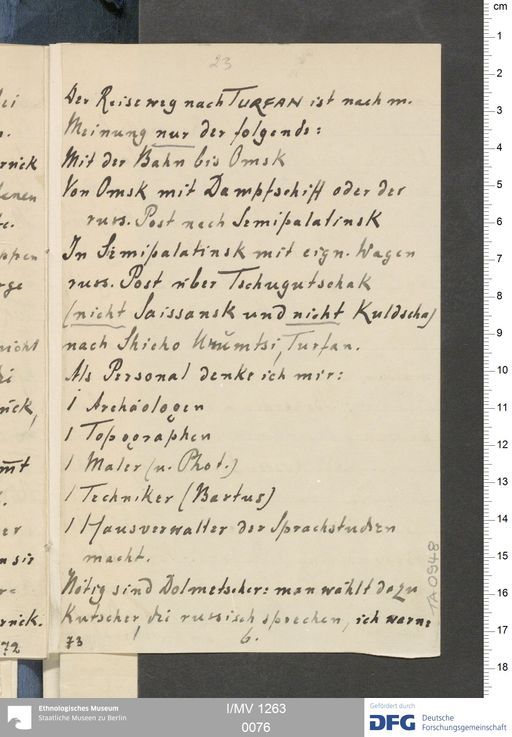 23
Der Reiseweg nach TURFAN ist nach m.
Meinung nur der folgende:
Mit der Bahn bis Omsk
Von Omsk mit Dampfschiff oder der
russ. Post nach Semipalatinsk
In Semipalatinsk mit eign. Wagen
russ. Post über Tschugutschak
(nicht Saissansk und nicht Kuldscha)
nach Shicho Urŭmtsi, Turfan.
Als Personal denke ich mir:
1 Archäologen
1 Topographen
1 Maler (u. Phot.)
1 Techniker (Bartus)
1 Hausverwalter der Sprachstudien
macht.
Nötig sind Dolmetscher: man wählt dazu
Kutscher, die russisch sprechen, ich warne
73
6.
72
TA 0948
cm
1
2
3
4
5
6
7
8
9
10
11
12
13
14
15
16
17
18
Ethnologisches Museum
Staatliche Museen zu Berlin
I/MV 1263
0076
Gefördert durch
DFG Deutsche
Forschungsgemeinschaft